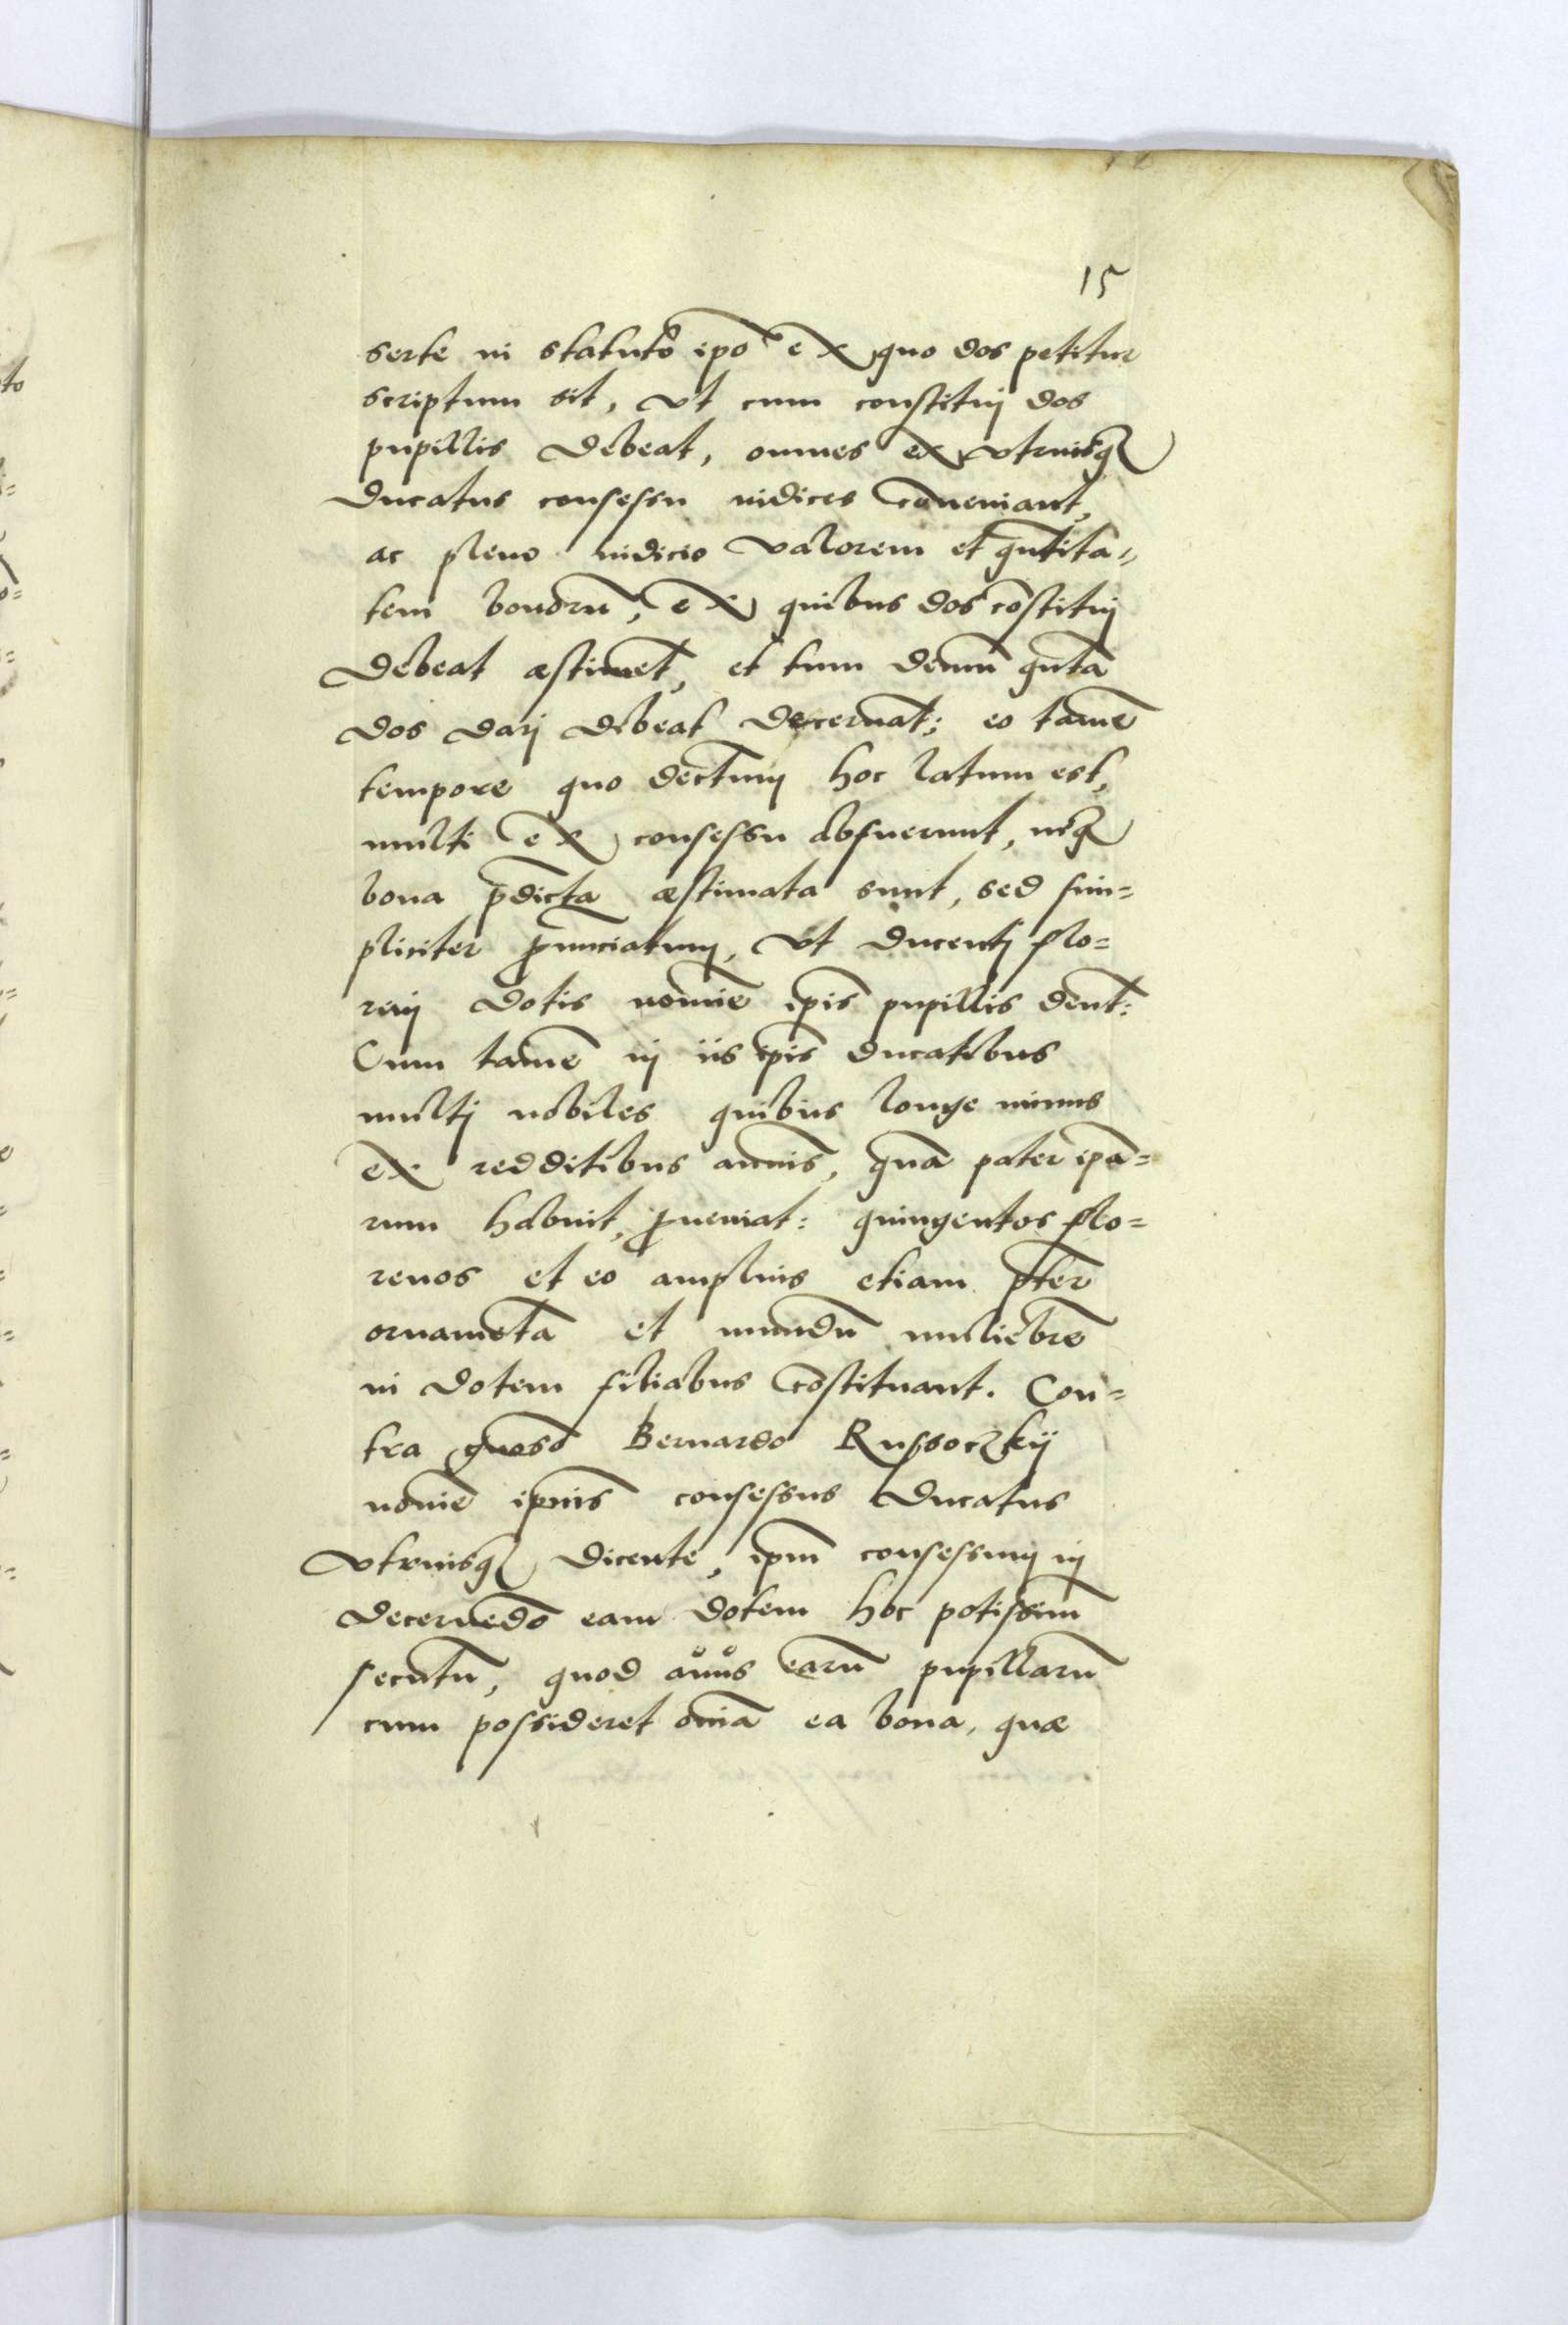 15
serte in statuto ipō ex quo dos petitur
scriptum sit, vt cum constituj dos
pupillis debeat, omnes ex vtriusq
ducatus consessu iudices cōueniant,
ac pleno iudicio valorem et qūtita=
tem bonorū, ex quibus dos cōstituj
debeat æstimēt, et tum demū qūta
dos darj debeat decernāt; eo tamē
tempore quo dectum hoc latum est,
multi ex consessu abfuerunt, neq
bona p̄dicta æstimata sunt, sed sim=
pliciter p̄nunciatum, vt ducentj flo=
renj dotis nomīe ipīs pupillis dent̄:
Cum tamē in iis ipīs ducatibus
multj nobiles quibus longe minus
ex redditibus annīs, quā pater ipā=
rum habuit, ꝓueniat: quingentos flo=
renos et eo amplius etiam p̄ter
ornamēta et mundū muliebrē
in dotem filiabus cōstituant. Con=
tra gnoso Bernardo Russoczkij
nomīe ipīus consessus ducatus
vtriusq dicente, ipm̄ consessum in
decernēdo eam dotem hoc potissimū
secutū, quod auus earū pupillarū
cum possideret omīa ea bona, quæ